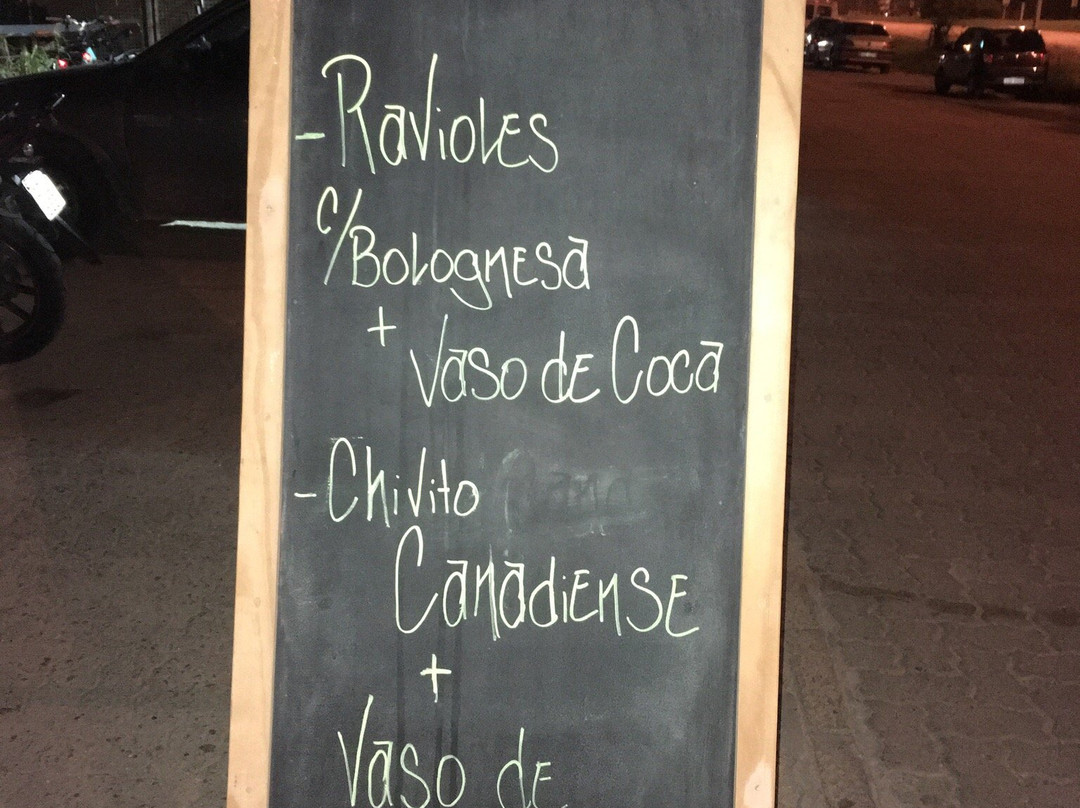 - Ravioles
c/Bolognesa
+
Vaso de Coca
- Chivito
Canadiense
+
Vaso de